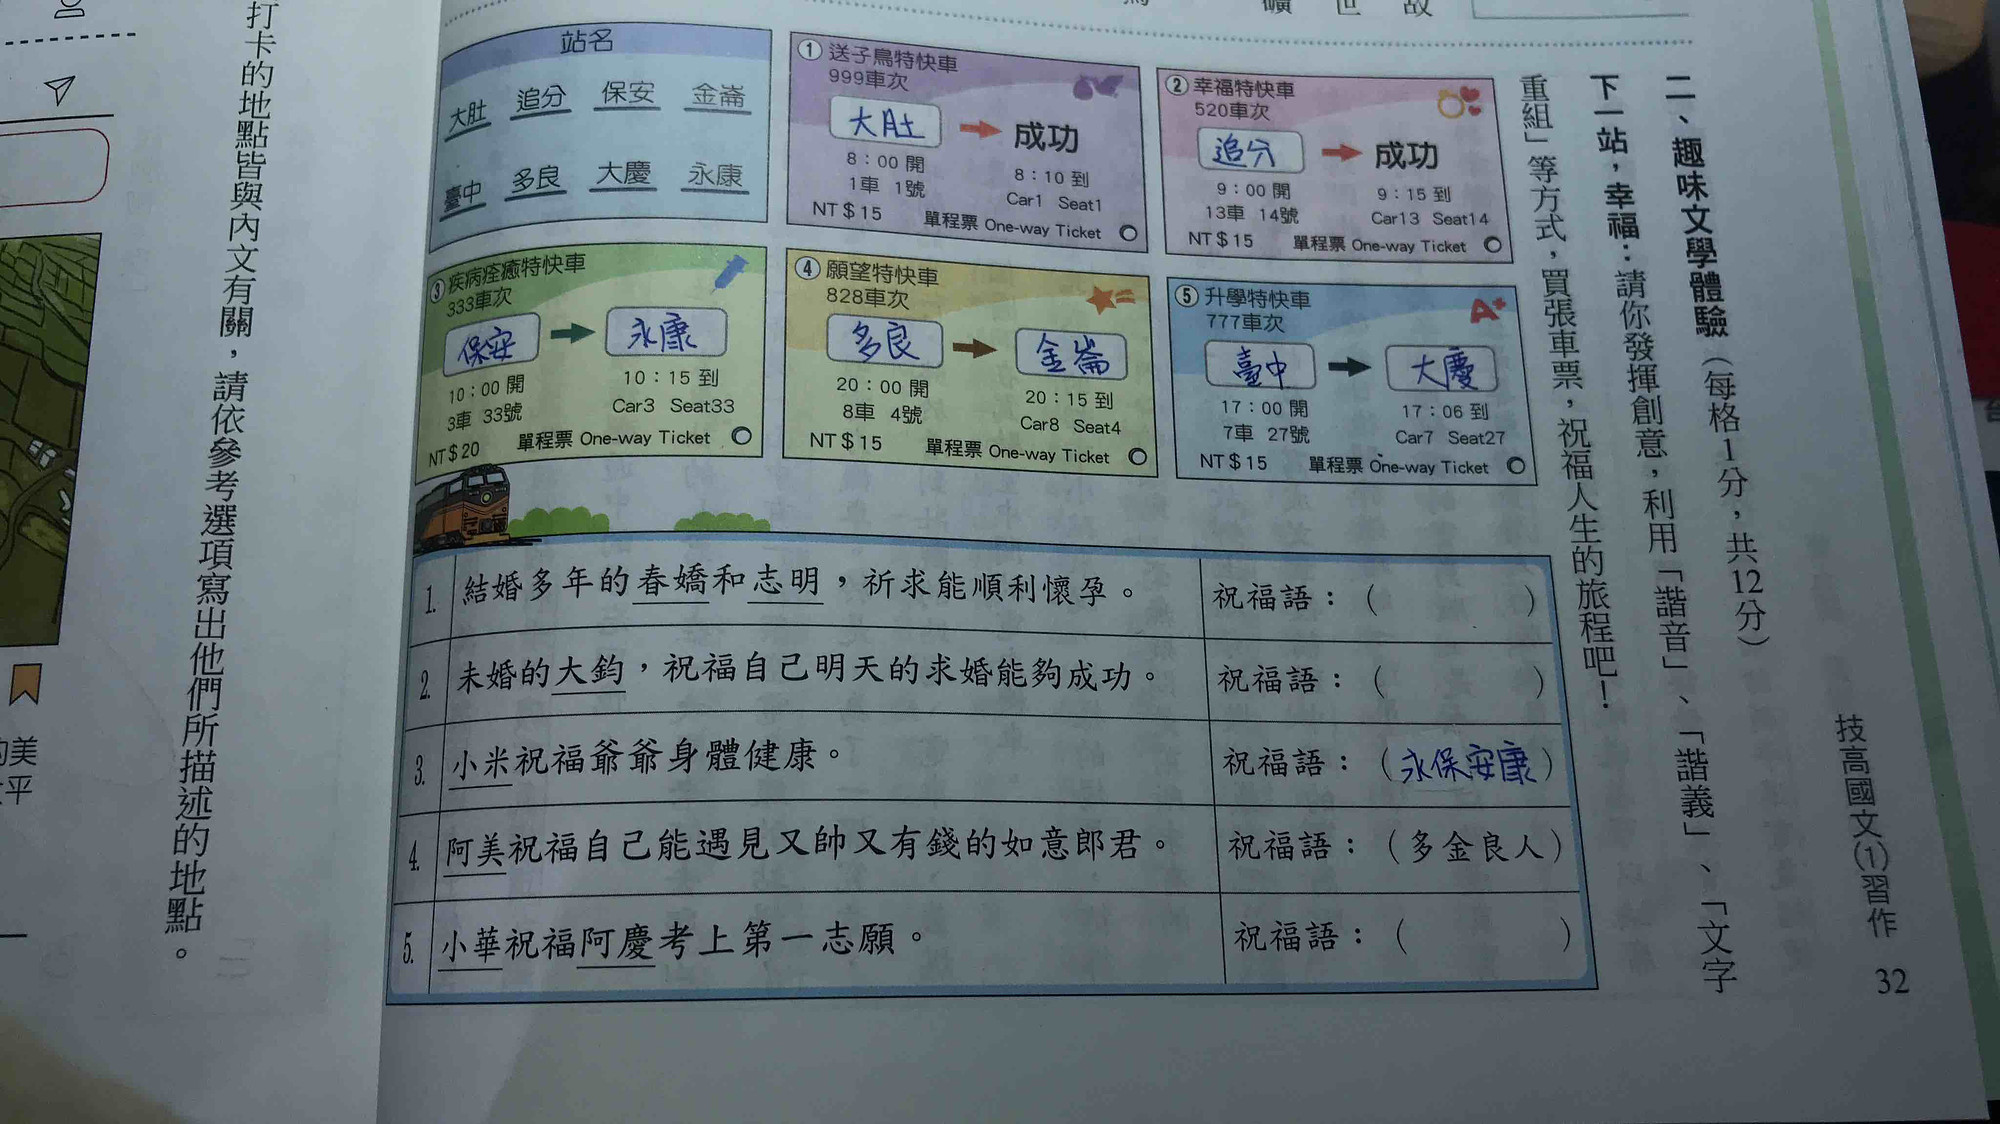 技高國文(1)習作 32
二、趣味文學體驗（每格1分，共12分）
下一站，幸福：請你發揮創意，利用「諧音」、「諧義」、「文字
重組」等方式，買張車票，祝福人生的旅程吧！
站名
大肚 追分 保安 金崙
臺中 多良 大慶 永康
① 送子鳥特快車
999車次
大肚 → 成功
8：00 開 8：10 到
1車 1號 Car1 Seat1
NT＄15 單程票 One-way Ticket
② 幸福特快車
520車次
追分 → 成功
9：00 開 9：15 到
13車 14號 Car13 Seat14
NT＄15 單程票 One-way Ticket
③ 疾病痊癒特快車
333車次
保安 → 永康
10：00 開 10：15 到
3車 33號 Car3 Seat33
NT＄20 單程票 One-way Ticket
④ 願望特快車
828車次
多良 → 金崙
20：00 開 20：15 到
8車 4號 Car8 Seat4
NT＄15 單程票 One-way Ticket
⑤ 升學特快車
777車次
A+
臺中 → 大慶
17：00 開 17：06 到
7車 27號 Car7 Seat27
NT＄15 單程票 One-way Ticket
1. 結婚多年的春嬌和志明，祈求能順利懷孕。 祝福語：（ ）
2. 未婚的大鈞，祝福自己明天的求婚能夠成功。 祝福語：（ ）
3. 小米祝福爺爺身體健康。 祝福語：（永保安康）
4. 阿美祝福自己能遇見又帥又有錢的如意郎君。 祝福語：（多金良人）
5. 小華祝福阿慶考上第一志願。 祝福語：（ ）
打卡的地點皆與內文有關，請依參考選項寫出他們所描述的地點。